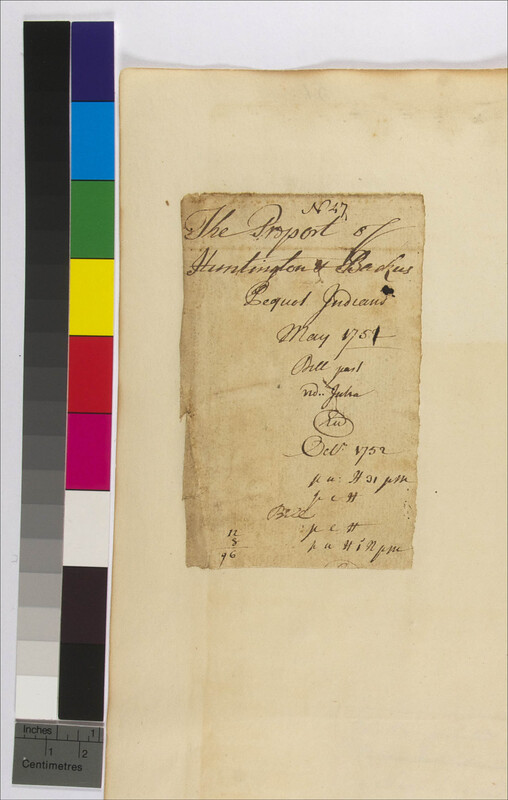 N 47
The Report of
Huntington & Backus
Pequot Indians
May 1751
Bill past
Infra
Octr. 1752
p u: H 31 p m
p c H
Bill
p c H
p u H 12 p m
12
8
96
Inches 1
1 2
Centimetres